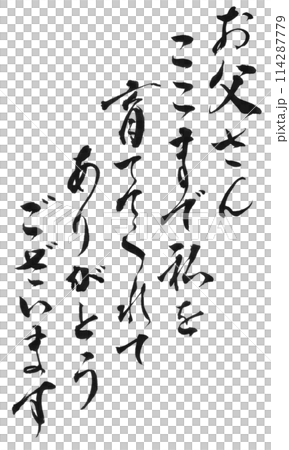 お父さん
ここまで私を
育ててくれて
ありがとう
ございます
pixta.jp - 114287779